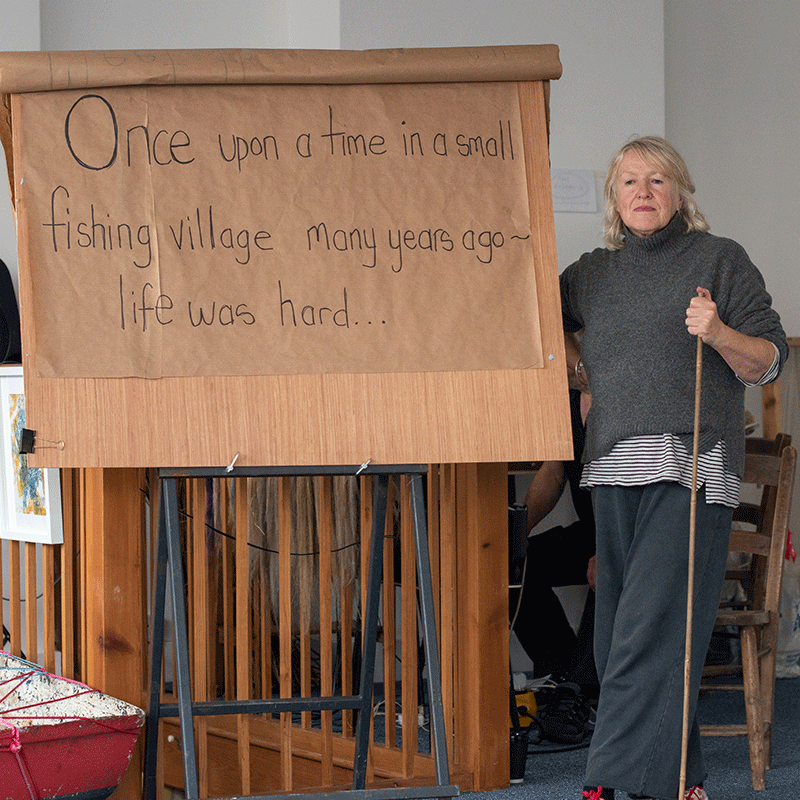 Once upon a time in a small
fishing village many years ago~
life was hard...